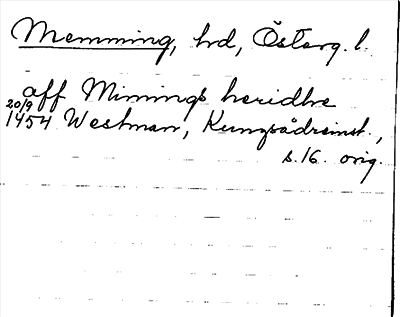 Memming, hrd, Österg. l.
aff Minings heridhe
20/9
1454 Westman, Kungsådreinst.,
s. 16. orig.